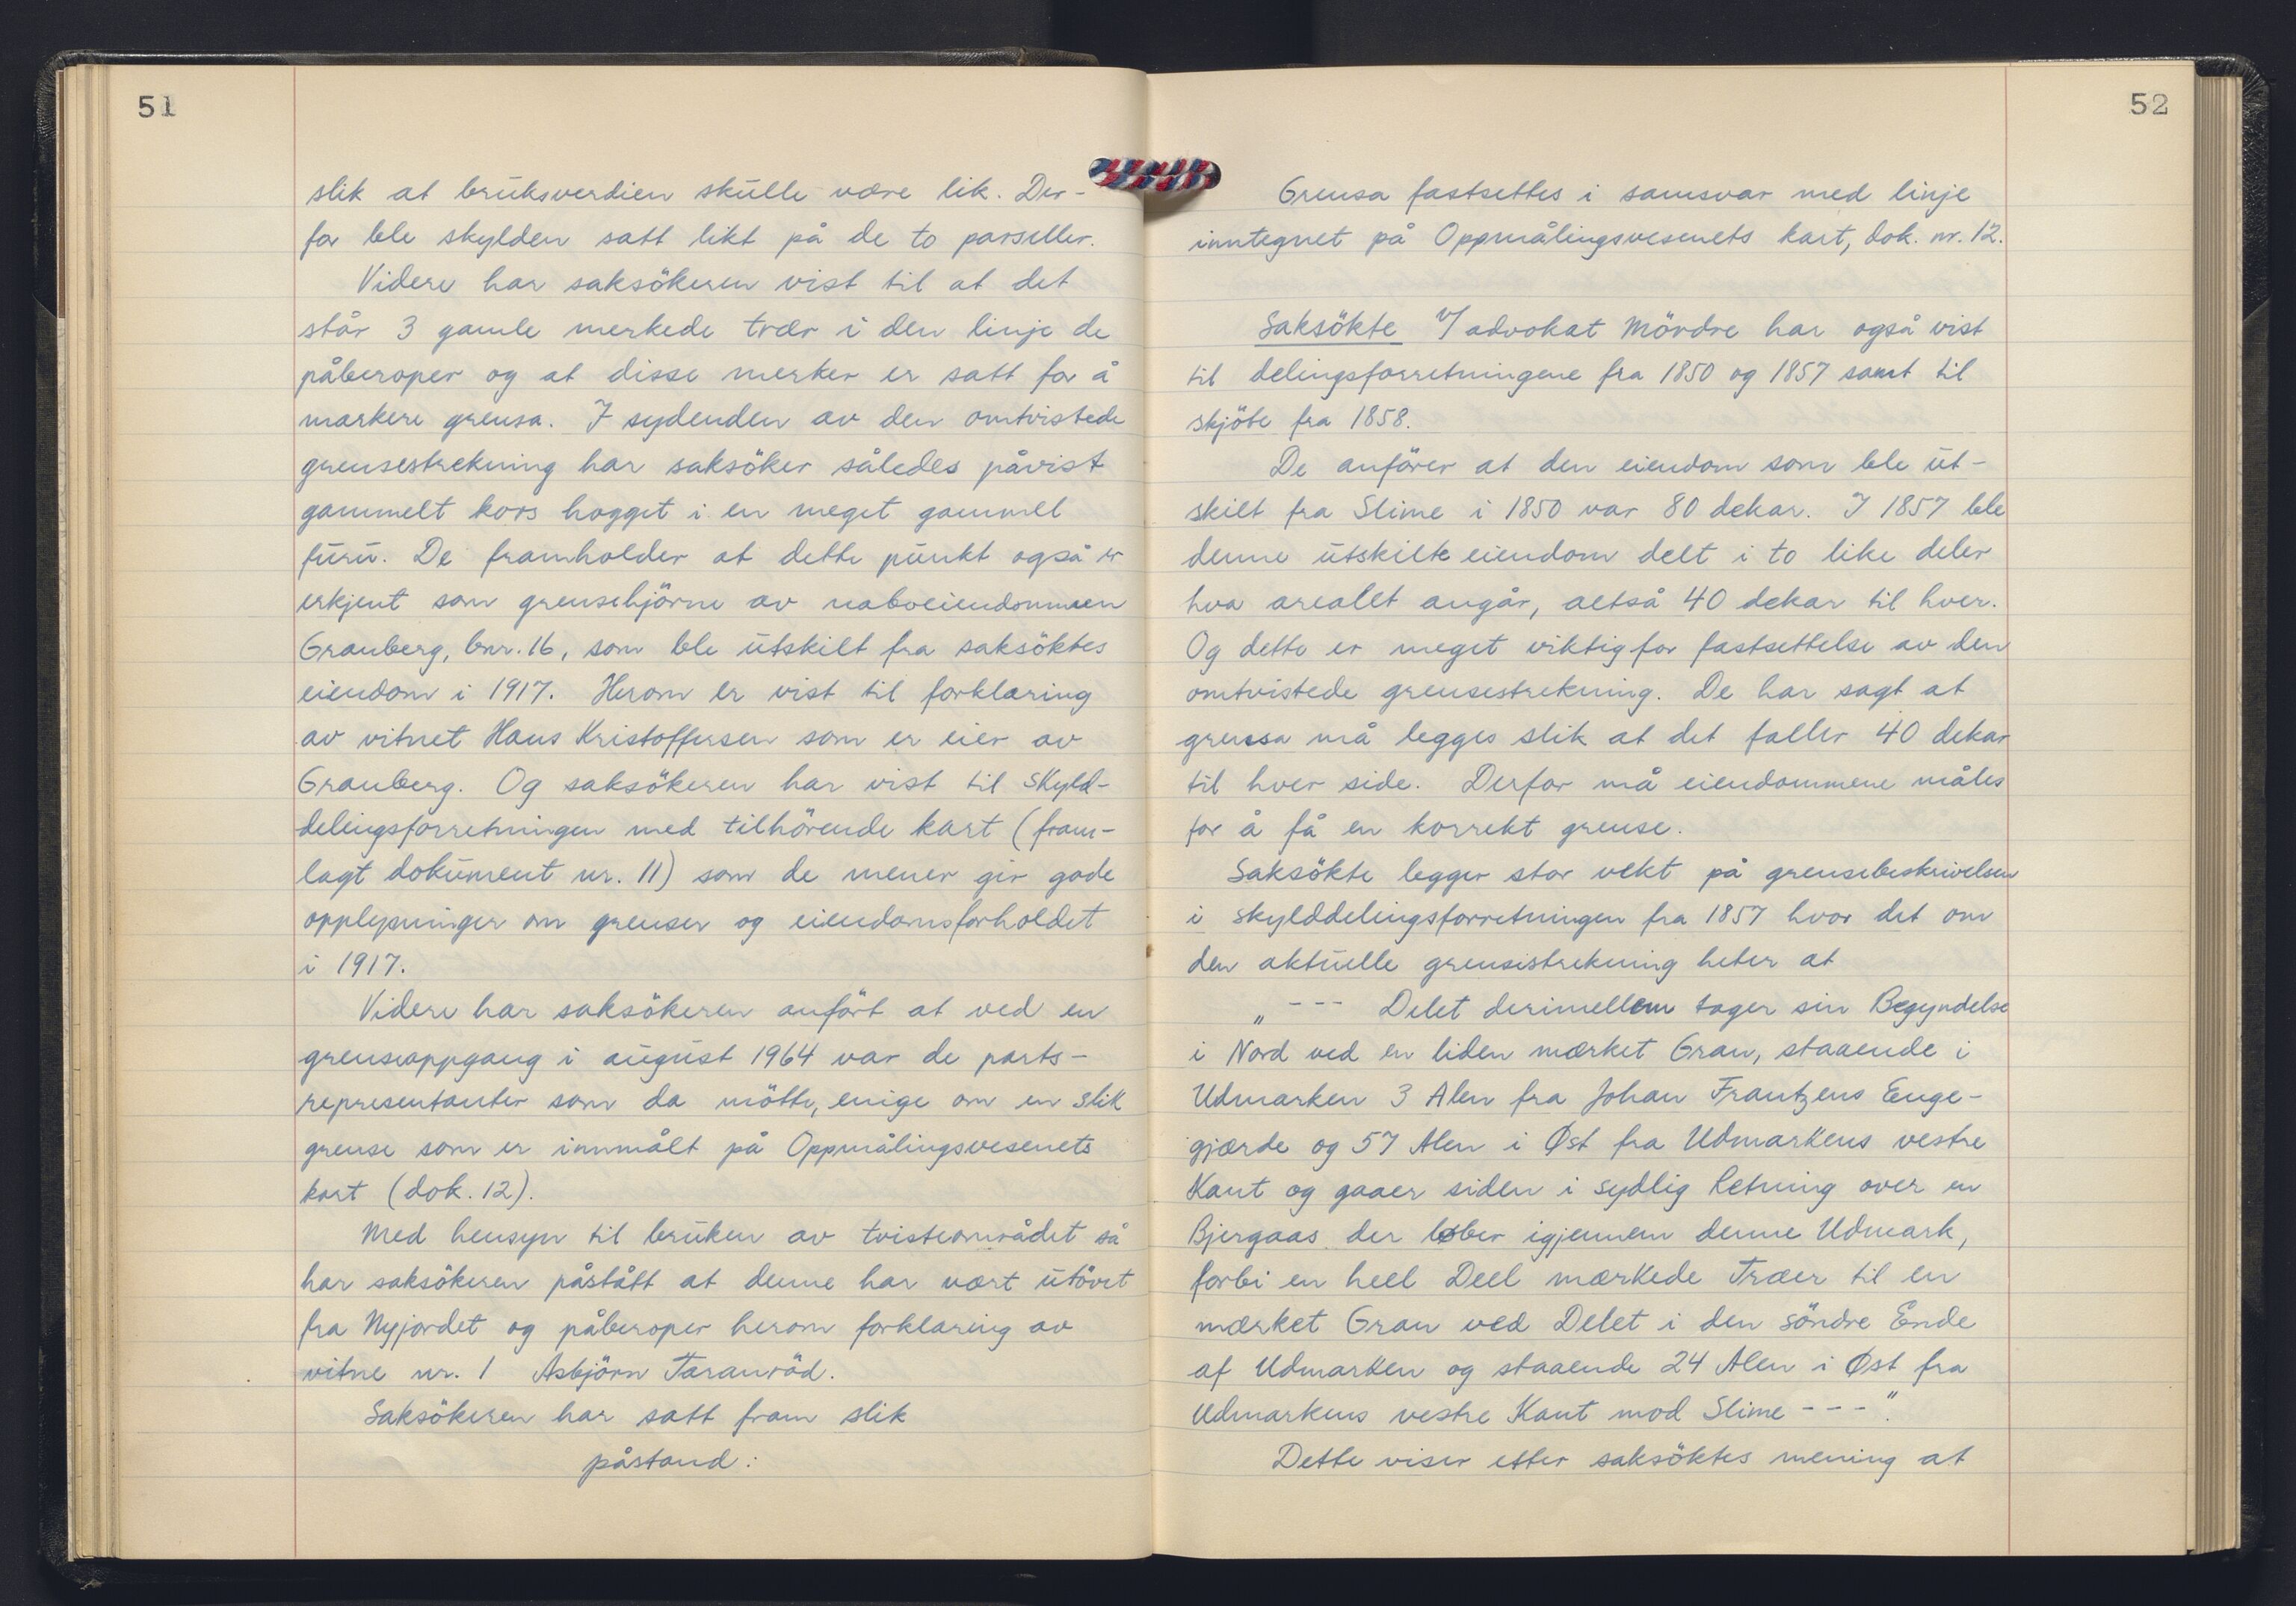 51
slik at bruksverdien skulle være lik. Der-
for ble skylden satt likt på de to parseller.
Videre har saksökeren vist til at det
står 3 gamle merkede trær i den linje de
påberoper og at disse merker er satt for å
markere grensa. I sydenden av den omtvistede
grensestrekning har saksöker således påvist
gammelt kors hogget i en meget gammel
furu. De framholder at dette punkt også er
erkjent som grensehjörne av naboeiendommen
Granberg, bnr. 16, som ble utskilt fra saksöktes
eiendom i 1917. Herom er vist til forklaring
av vitnet Hans Kristoffersen som er eier av
Granberg. Og saksökeren har vist til skyld-
delingsforretningen med tilhörende kart (fram-
lagt dokument nr. 11) som de mener gir gode
opplysninger om grenser og eiendomsforholdet
i 1917.
Videre har saksökeren anfört at ved en
grenseoppgang i august 1964 var de parts-
representanter som da mötte, enige om en slik
grense som er innmålt på Oppmålingsvesenets
kart (dok. 12).
Med hensyn til bruken av tvisteområdet så
har saksökeren påstått at denne har vært utövet
fra Nyjordet og påberoper herom forklaring av
vitne nr. 1 Asbjörn Taranröd.
Saksökeren har satt fram slik
påstand:
52
Grensa fastsettes i samsvar med linje
inntegnet på Oppmålingsvesenets kart, dok. nr. 12.
Saksökte v/ advokat Mördre har også vist
til delingsforretningene fra 1850 og 1857 samt til
skjöte fra 1858.
De anförer at den eiendom som ble ut-
skilt fra Slime i 1850 var 80 dekar. I 1857 ble
denne utskilte eiendom delt i to like deler
hva arealet angår, altså 40 dekar til hver.
Og dette er meget viktig for fastsettelse av den
omtvistede grensestrekning. De har sagt at
grensa må legges slik at det faller 40 dekar
til hver side. Derfor må eiendommene måles
for å få en korrekt grense.
Saksökte legger stor vekt på grensebeskrivelsen
i skylddelingsforretningen fra 1857 hvor det om
den aktuelle grensestrekning heter at
„ --- Delet derimellem tager sin Begyndelse
i Nord ved en liden mærket Gran, staaende i
Udmarken 3 Alen fra Johan Frantzens Enge-
gjærde og 57 Alen i Øst fra Udmarkens vestre
Kant og gaaer siden i sydlig Retning over en
Bjergaas der løber igjennem denne Udmark,
forbi en heel Deel mærkede Træer til en
mærket Gran ved Delet i den söndre Ende
af Udmarken og staaende 24 Alen i Øst fra
Udmarkens vestre Kant mod Slime ---".
Dette viser etter saksöktes mening at